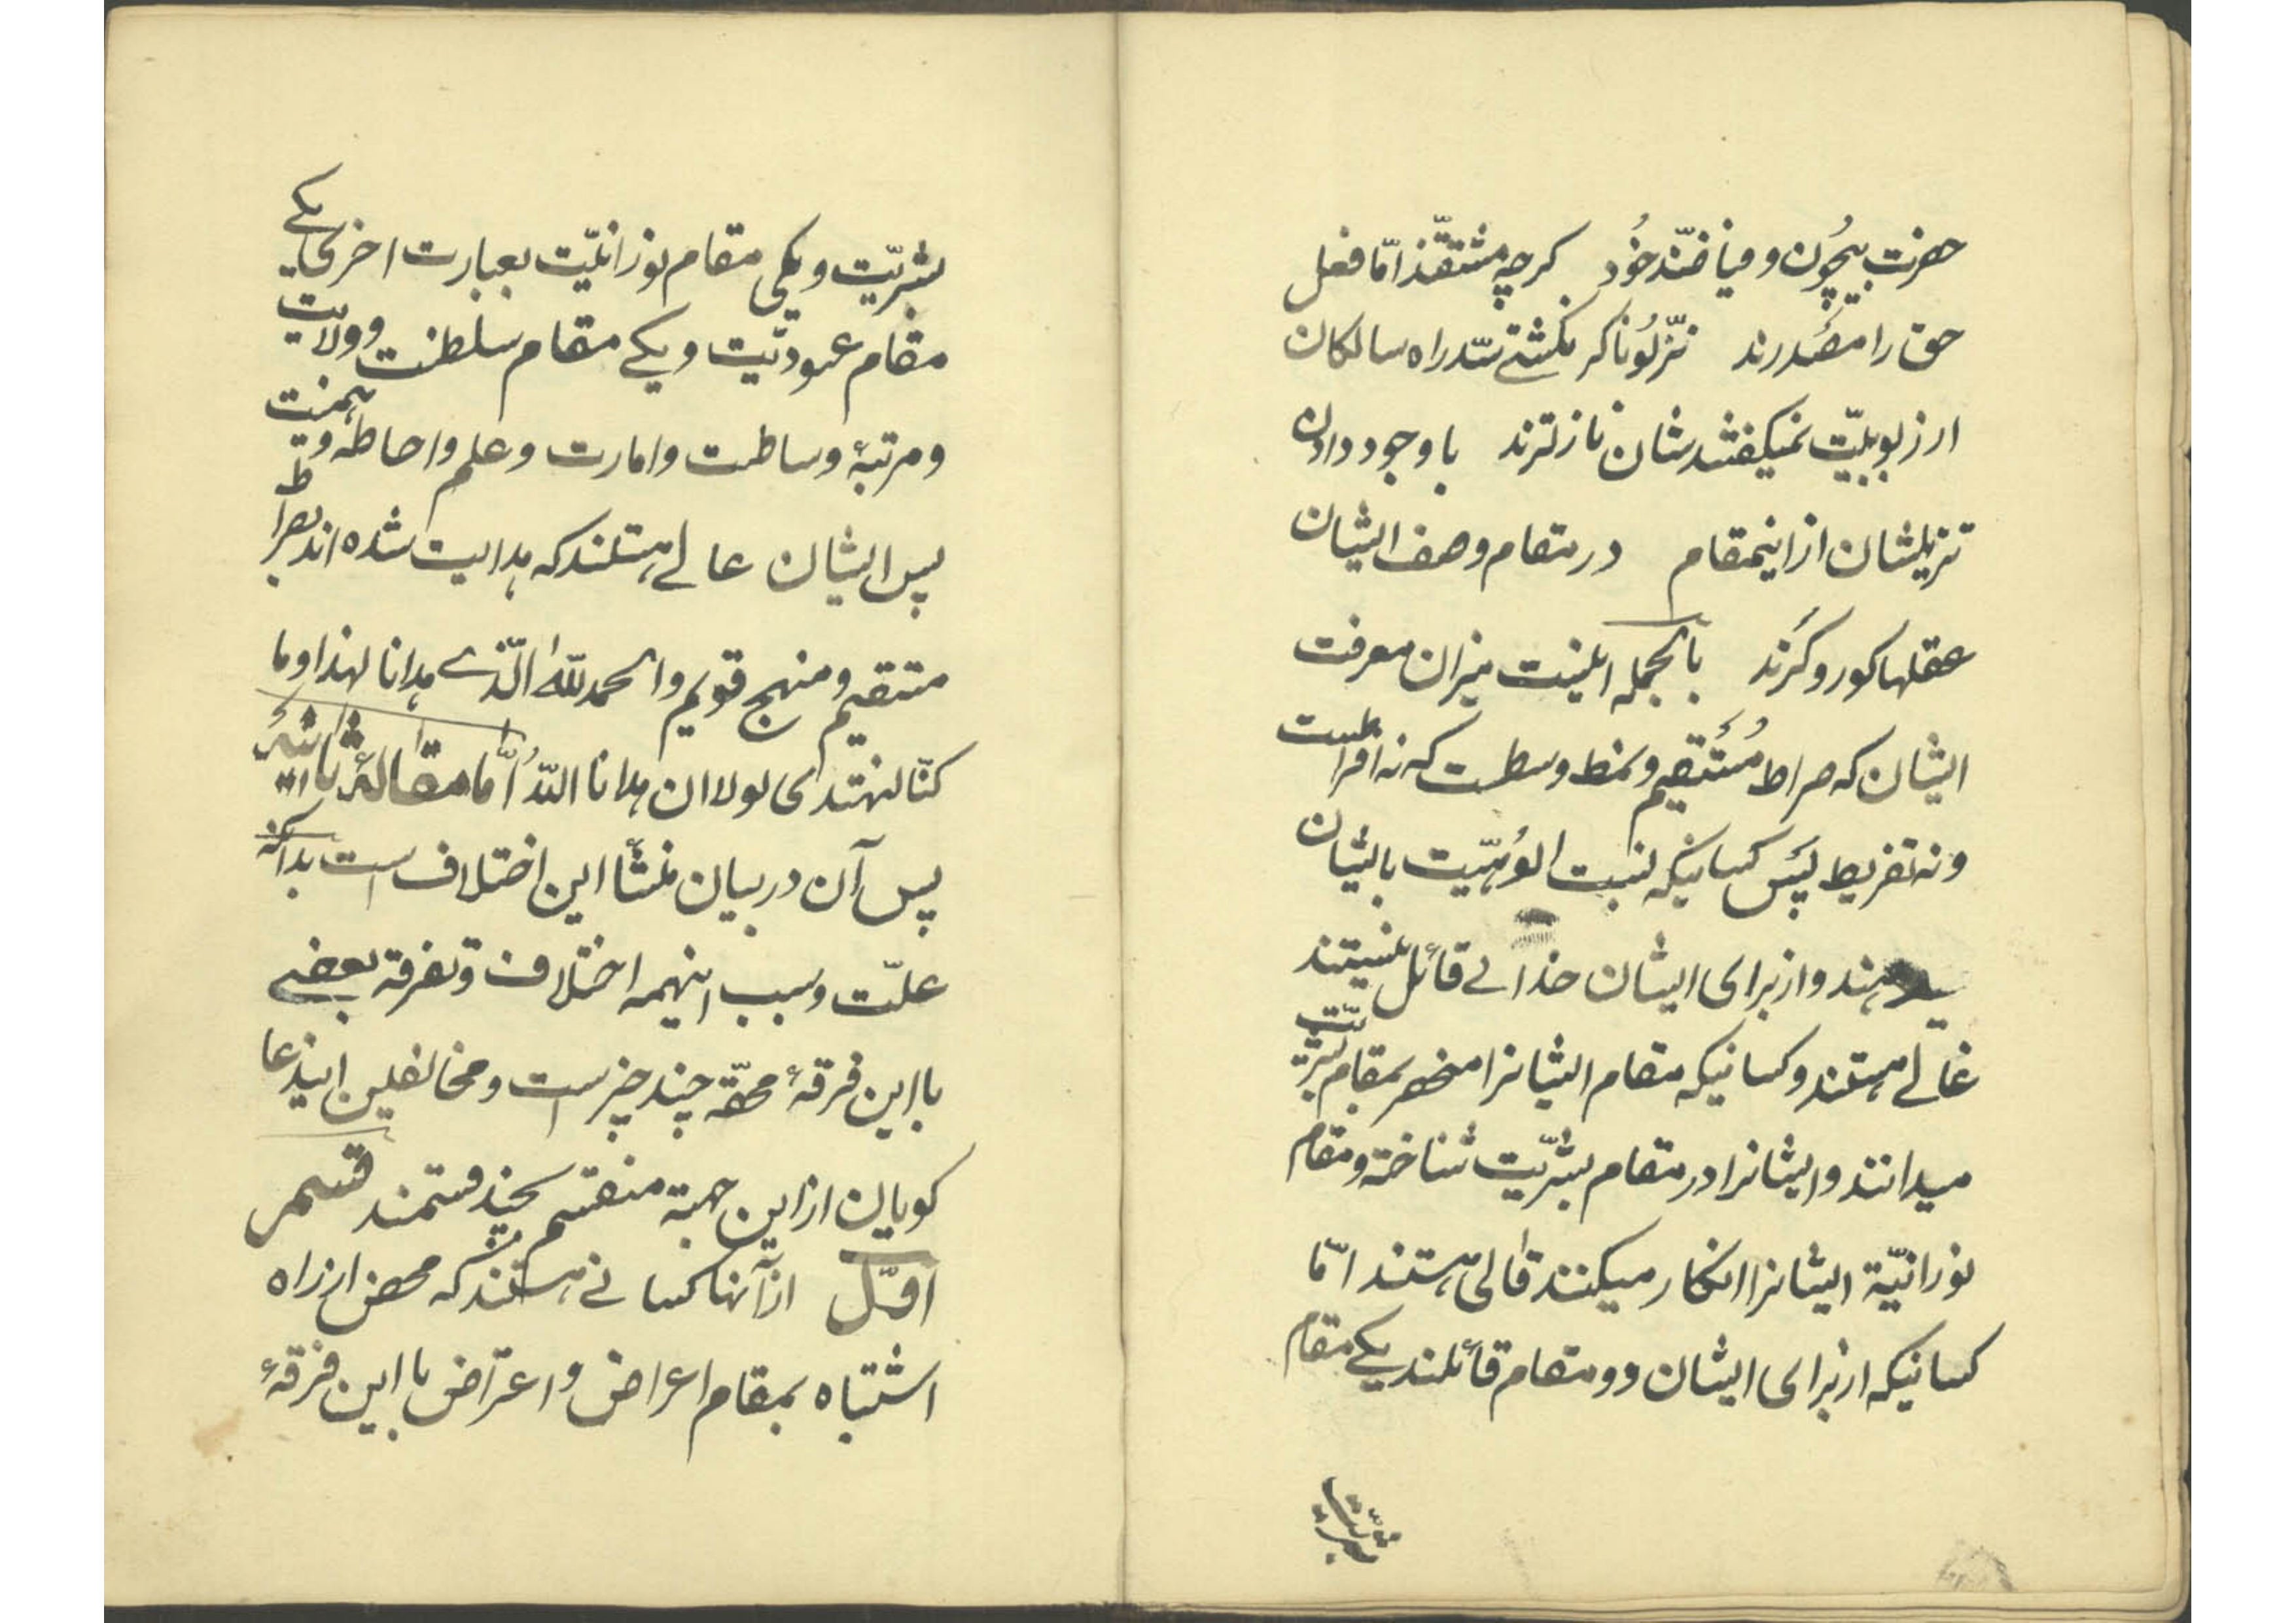 حضرت بیچُون و فیاضند خُود کرچه مشتقند امّا فعل
حق را مصدرند نزّلُونا کر نکشتی سدّ راه سالکان
از ربوبیّت نمیکفتند شان نازلترند با وجود دادن
تنزیلشان از اینمقام در مقام وصف ایشان
عقلها کور و کرند بالجمله اینست میزان معرفت
ایشان که صراط مُستقیم و نمط وسطست که نه افراطست
و نه تفریط پس کسانیکه نسبت الوُهیّت بایشان
میدهند و از برای ایشان خدائی قائل نیستند
غالے هستند و کسانیکه مقام ایشانرا منحصر بمقام بشریّت
میدانند و ایشانرا در مقام بشریّت شناخته و مقام
نورانیّة ایشانرا انکار میکنند قالی هستند امّا
کسانیکه از برای ایشان دو مقام قائلند یکے مقام
بشریّت
بشریّت و یکی مقام نورانیّت بعبارت اخری یکے
مقام عبودیّت و یکے مقام سلطنت و ولایت
و مرتبهٔ وساطت و امارت و علم و احاطه و هیمنت
پس ایشان عالے هستند که هدایت شده اند بصراط
متقیم و منهج قویم و الحمد للّه الّذے هدانا لهذا و ما
کنّا لنهتدی لولا ان هدانا اللّه امّا مقالهٔ ثانیه
پس آن در بیان منشأ این اختلاف است بدانکه
علّت و سبب اینهمه اختلاف و تفرقه بعضے
با این فرقهٔ محقّه چند چیز است و مخالفین این مدعا
کویان از این جهة منقسم بچند قسمند قسم
اوّل از آنها کسانے هستند که محض از راه
اشتباه بمقام اعراض و اعتراض با این فرقهٔ